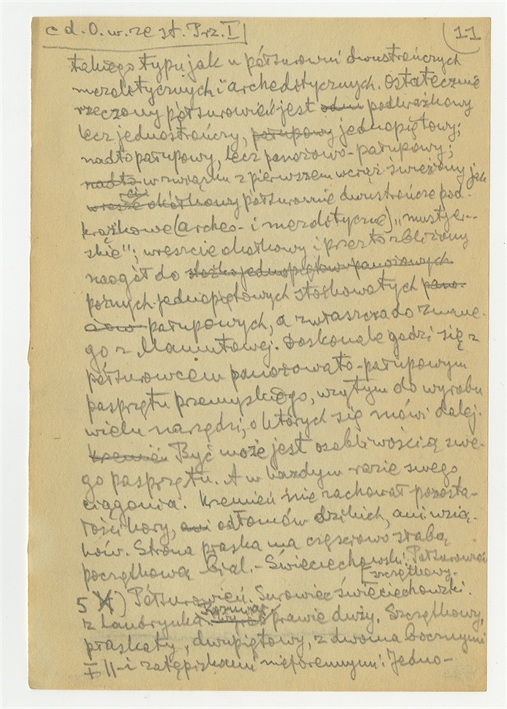 c d. O. w. rze st. Prz. I
11
takiego typu jak u półsurowni dwustrończych
mezolitycznych i archeolitycznych. Ostatecznie
rzeczony półsurowień jest podwężkowy
lecz jednostrończy, jednopiętowy;
nadto pałupowy, lecz panorowo-pałupowy;
w związku z pierwszem wciąż świeżony jak
półsurownie dwustrończe pod-
krążkowe (archeo- i mezolityczne), "mustjer-
skie"; wreszcie okołkowy i przeto zbliżony
naogół do
późnych jednopiętowych stożkowatych
pałupowych, a zwłaszcza do znane-
go z Maniutowej. Doskonale godzi się z
półsurowcem panorowato-pałupowym
pasprzętu przemyskiego, wziętym do wyrobu
wielu narzędzi, o których się mówi dalej.
Być może jest osobliwością swe-
go pasprzętu. A w każdym razie swego
ciągania. Kremień nie zachował pozosta-
łości kory, odłamów dzikich, ani wzią-
ków. Strona płaska ma częściowo słabą
początkową biał. - Świeciechowski. Półsurowień
szczątkowy.
5) Półsurowień. Surowiec świeciechowski
z Landrynka. prawie duży. Szczątkowy,
płaskaty, dwupiętowy, z dwoma bocznymi
I II-i zatępiskami nieforemnymi. Jedno-